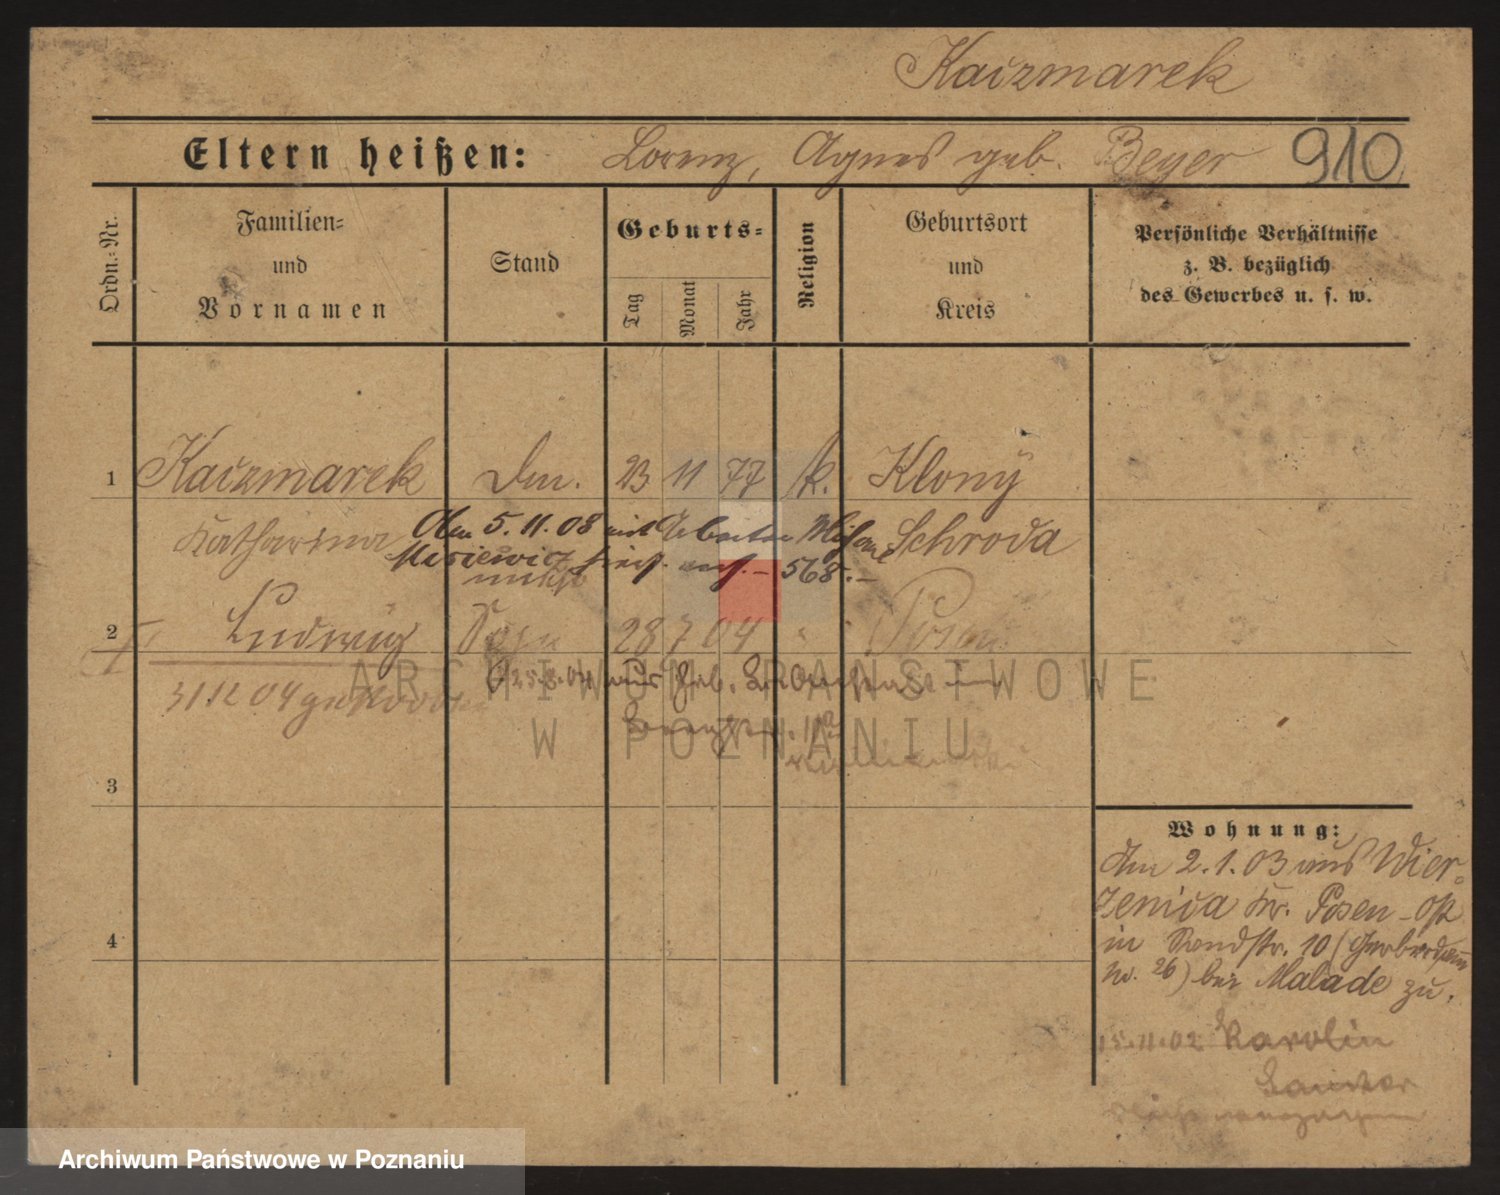 Kaczmarek
Eltern heißen: Lorenz, Agnes geb. Beyer 910
Ordn.-Nr.
Familien-
und
Vornamen
Stand
Geburts-
Tag
Monat
Jahr
Religion
Geburtsort
und
Kreis
Persönliche Verhältnisse
z. B. bezüglich
des Gewerbes u. s. w.
1 Kaczmarek Dm. 23 11 77 k. Klony
Katharina Schroda
Am 5.11.08 mit Arbeiter
568.-
2 Ludwig Sohn 28 7 04 " " Posen
25.8.04 aus
31.12 04 gestorben
3
4
Wohnung:
Am 2.1.03 aus Wier-
zenica Kr. Posen-Ost
in Sandstr. 10 (Gerberdamm
No. 26) bei Malade zu.
15.11.02 Karolin
ARCHIWUM PAŃSTWOWE
W POZNANIU
Archiwum Państwowe w Poznaniu